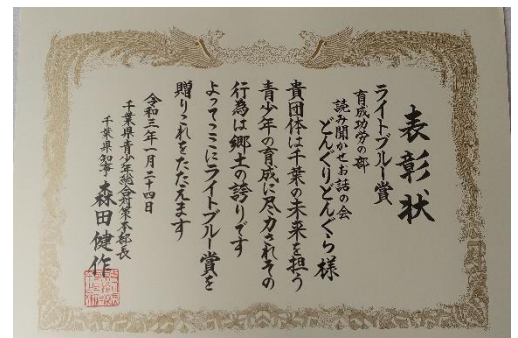 表彰状
ライトブルー賞
育成功労の部
読み聞かせお話の会
どんぐりどんぐら 様
貴団体は千葉の未来を担う
青少年の育成に尽力されその
行為は郷土の誇りです
よってここにライトブルー賞を
贈りこれをたたえます
令和三年一月二十四日
千葉県青少年総合対策本部長
千葉県知事 森田健作